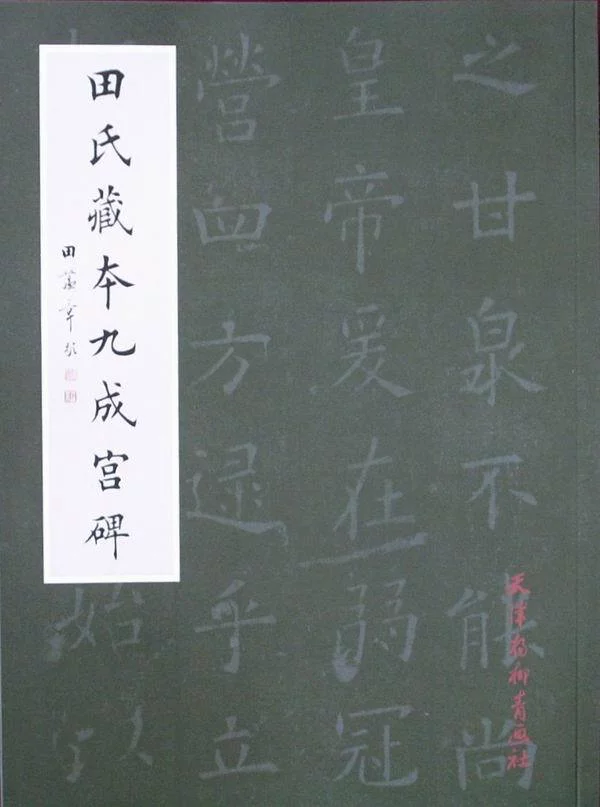 田氏藏本九成宫碑
田蕴章题
之甘泉不能尚
皇帝爰在弱冠
營四方逮乎立
始以
天津杨柳青画社